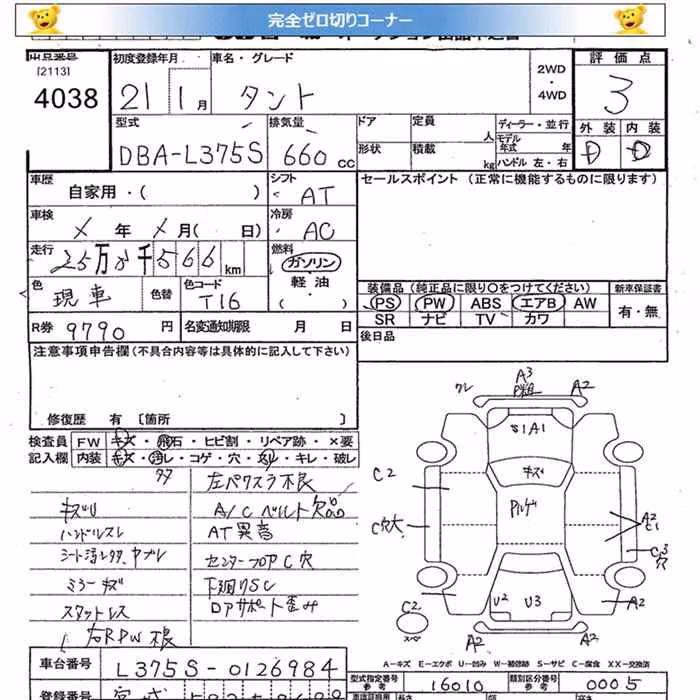 完全ゼロ切りコーナー
出品番号 初度登録年月 車名・グレード 2WD・4WD 評価点
[2113]
4038 21 1月 タント 3
型式 排気量 ドア 定員 人 ディーラー・並行 外装 内装
DBA-L375S 660cc 形状 積載 kg モデル年式 年 ハンドル 左・右 D D
車歴 自家用・( ) シフト AT セールスポイント (正常に機能するものに限ります)
車検 X年 X月( 日) 冷房 AC
走行 25万8千566km 燃料 ガソリン 軽油・( )
色 現車 色替 色コード T16
装備品 (純正品に限り○をつけてください) 新車保証書
PS PW ABS エアB AW 有・無
SR ナビ TV カワ
R券 9790円 名変通知期限 月 日 後日品
注意事項申告欄(不具合内容等は具体的に記入して下さい)
修復歴 有 〔箇所 〕
検査員 FW キズ・飛石・ヒビ割・リペア跡・×要
記入欄 内装 キズ・汚レ・コゲ・穴・スリ・キレ・破レ
キズU
ハンドルスレ
ミラーキズ
スタットレス
右RPW 根
左パワスラ不良
A/C ベルト欠品
AT異音
センターフロアC穴
下廻りSC
ロアサポート歪み
A3
A2
S1A1
キズ
C2
C穴大
A2
C1
C3
穴
U2 U3
A2
C2
A2 A2
A-キズ E-エクボ U-凹み W-補修跡 S-サビ C-腐食 XX-交換済
車台番号 L375S-0126984
型式指定番号 参考 16010 類別区分番号 参考 0005
登録番号